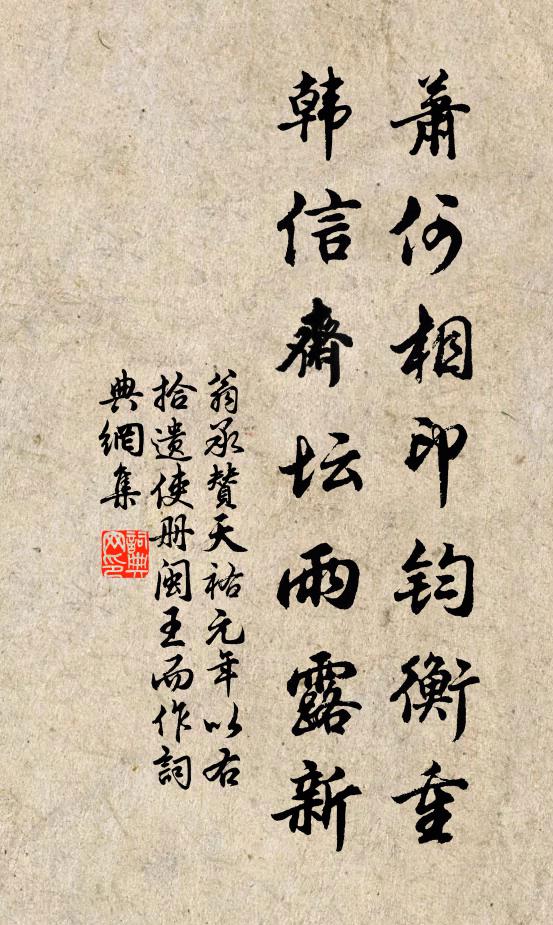 萧何相印钧衡重
韩信斋坛雨露新
翁承赞天祐元年以右
拾遗使册闽王而作词
典網集
詞典网印